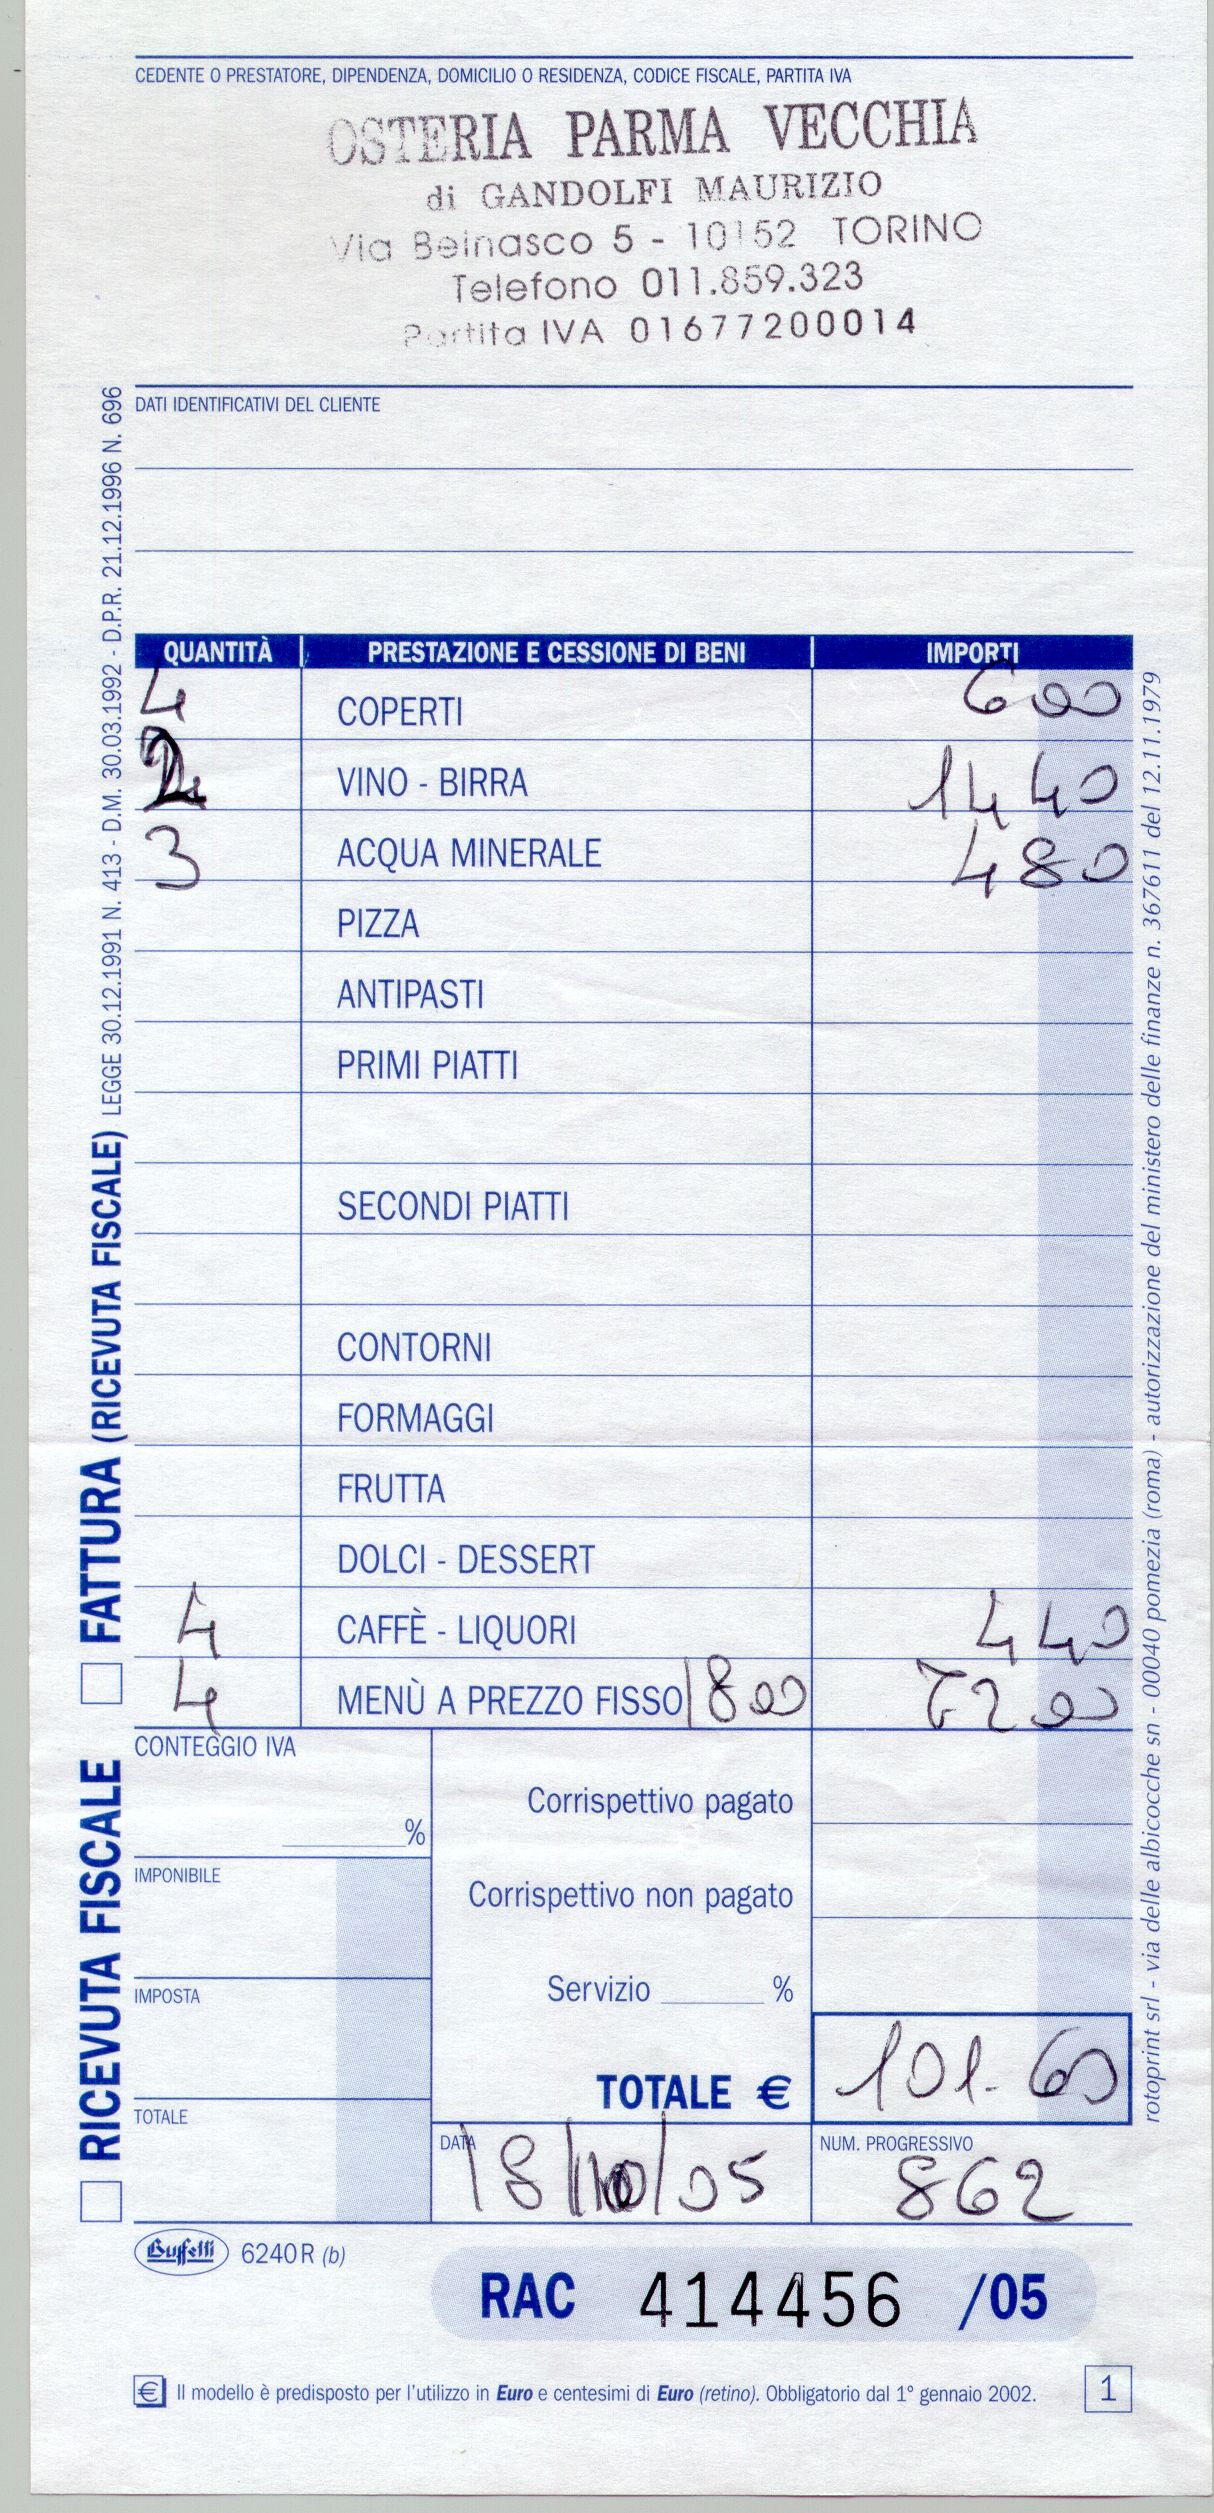 CEDENTE O PRESTATORE, DIPENDENZA, DOMICILIO O RESIDENZA, CODICE FISCALE, PARTITA IVA
OSTERIA PARMA VECCHIA
di GANDOLFI MAURIZIO
Via Beinasco 5 - 10152 TORINO
Telefono 011.859.323
Partita IVA 01677200014
DATI IDENTIFICATIVI DEL CLIENTE
QUANTITÀ PRESTAZIONE E CESSIONE DI BENI IMPORTI
4 COPERTI 6 00
2 VINO - BIRRA 14 40
3 ACQUA MINERALE 4 80
PIZZA
ANTIPASTI
PRIMI PIATTI
SECONDI PIATTI
CONTORNI
FORMAGGI
FRUTTA
DOLCI - DESSERT
4 CAFFÈ - LIQUORI 4 40
4 MENÙ A PREZZO FISSO 18 00 72 00
CONTEGGIO IVA
%
IMPONIBILE
IMPOSTA
TOTALE
Corrispettivo pagato
Corrispettivo non pagato
Servizio %
TOTALE € 101.60
DATA 18/10/05
NUM. PROGRESSIVO
862
Buffetti 6240R (b)
RAC 414456 /05
€ Il modello è predisposto per l'utilizzo in Euro e centesimi di Euro (retino). Obbligatorio dal 1° gennaio 2002.
1
RICEVUTA FISCALE FATTURA (RICEVUTA FISCALE) LEGGE 30.12.1991 N. 413 - D.M. 30.03.1992 - D.P.R. 21.12.1996 N. 696
rotoprint srl - via delle albicocche sn - 00040 pomezia (roma) - autorizzazione del ministero delle finanze n. 367611 del 12.11.1979